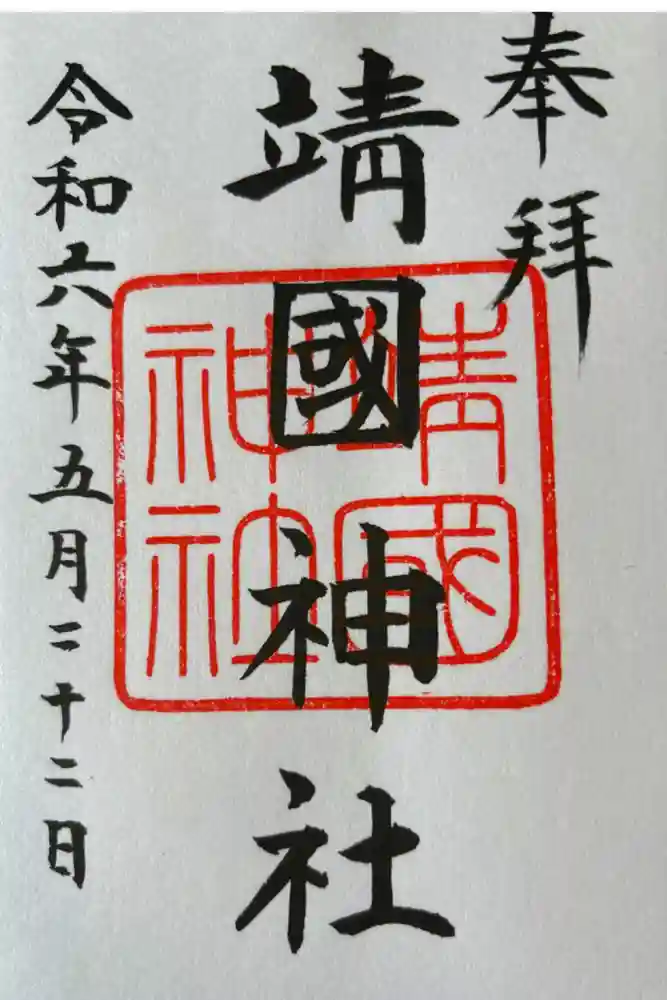 奉拝
靖國神社
靖國
神社
令和六年五月二十二日